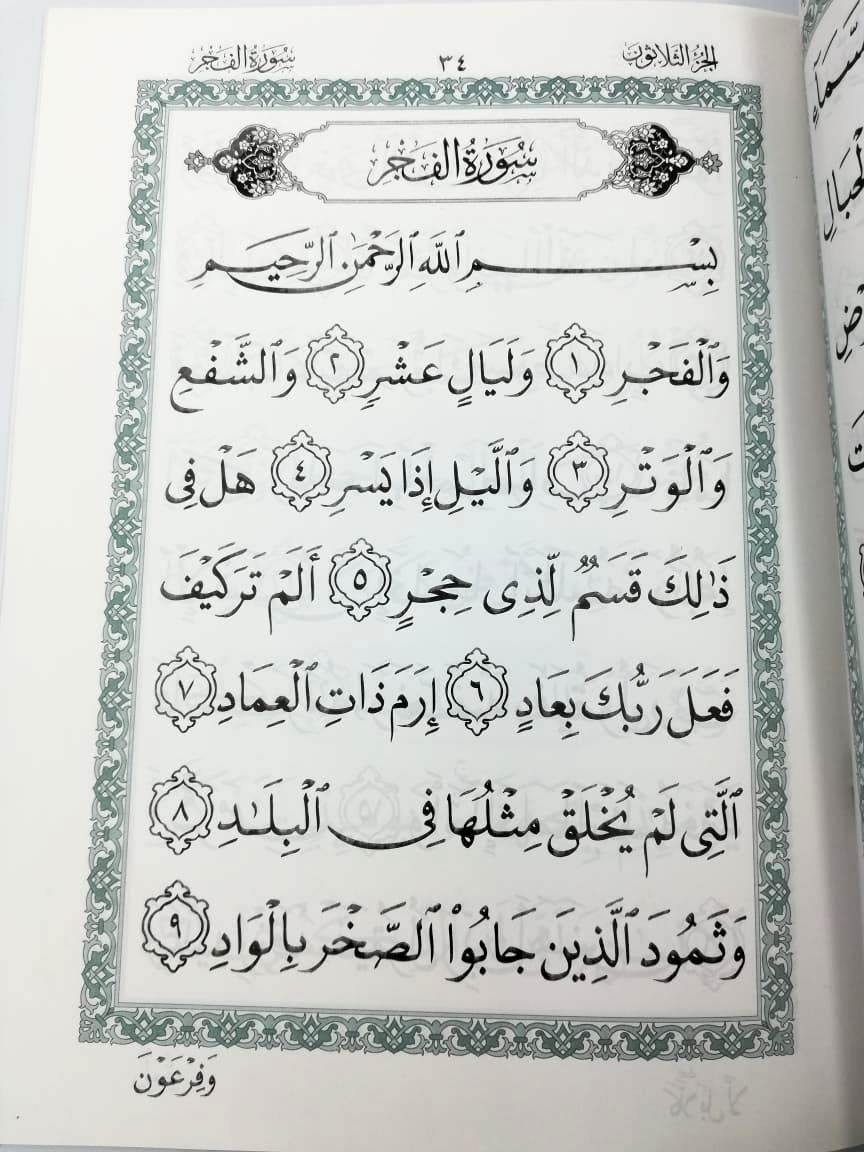 الجزء الثلاثون
٣٤
سورة الفجر
سُورَةُ الفَجْرِ
بِسْمِ ٱللَّهِ ٱلرَّحْمَٰنِ ٱلرَّحِيمِ
وَٱلْفَجْرِ ١ وَلَيَالٍ عَشْرٍ ٢ وَٱلشَّفْعِ
وَٱلْوَتْرِ ٣ وَٱلَّيْلِ إِذَا يَسْرِ ٤ هَلْ فِى
ذَٰلِكَ قَسَمٌ لِّذِى حِجْرٍ ٥ أَلَمْ تَرَ كَيْفَ
فَعَلَ رَبُّكَ بِعَادٍ ٦ إِرَمَ ذَاتِ ٱلْعِمَادِ ٧
ٱلَّتِى لَمْ يُخْلَقْ مِثْلُهَا فِى ٱلْبِلَٰدِ ٨
وَثَمُودَ ٱلَّذِينَ جَابُوا۟ ٱلصَّخْرَ بِٱلْوَادِ ٩
وَفِرْعَوْنَ